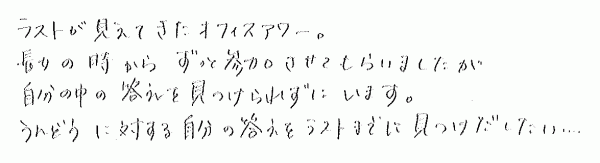 ラストが見えてきたオフィスアワー。
長女の時からずっと参加させてもらいましたが
自分の中の答えを見つけられずにいます。
うんどうに対する自分の答えをラストまでに見つけだしたい…